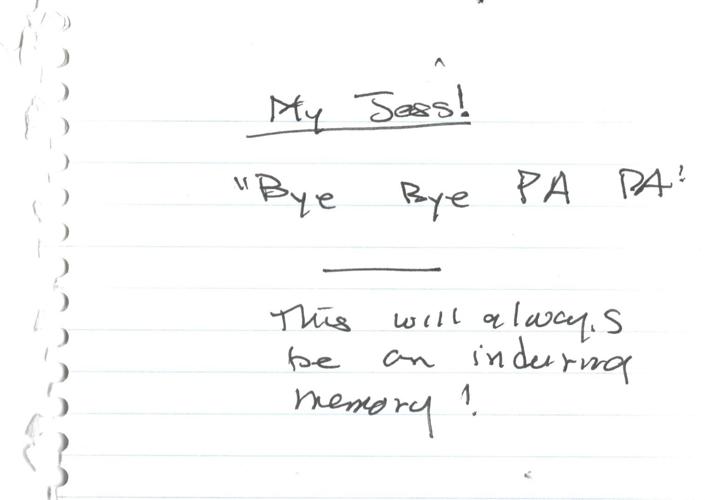 My Jess!
"Bye Bye PA PA!
This will always
be an induring
memory!